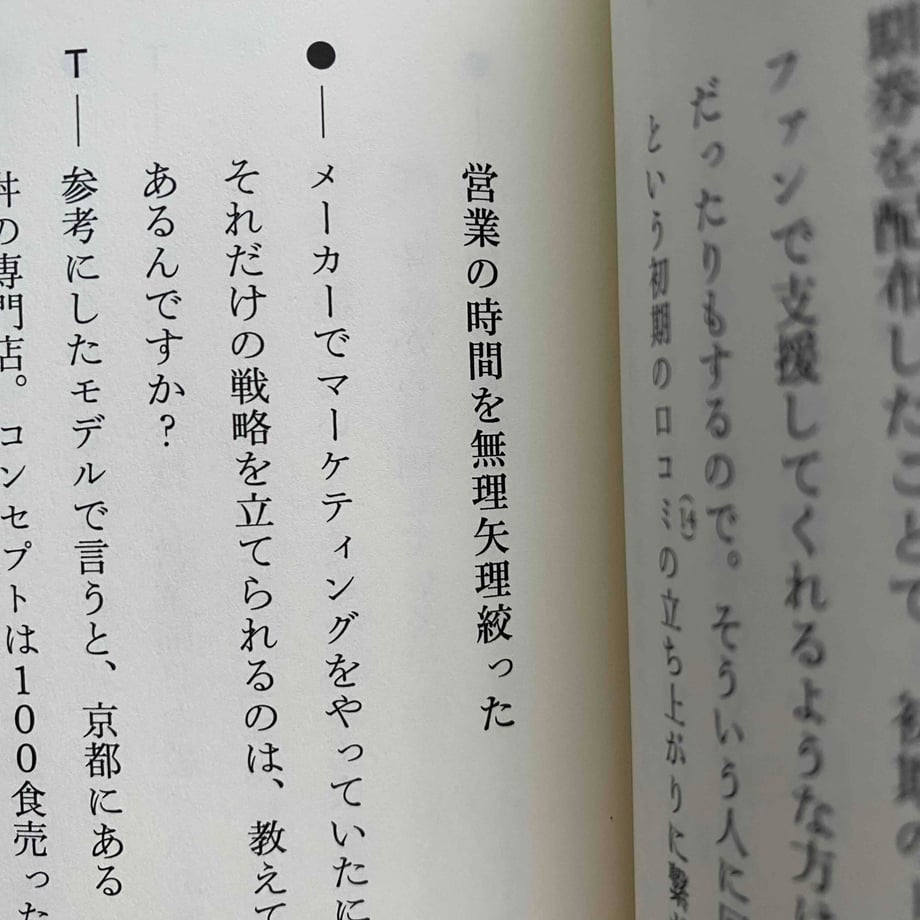 劇券を配布したことで、初期の
ファンで支援してくれるような方は
だったりもするので。そういう人に
という初期の口コミの立ち上がりに繋
(14)
営業の時間を無理矢理絞った
●―メーカーでマーケティングをやっていたに
それだけの戦略を立てられるのは、教えて
あるんですか？
T―参考にしたモデルで言うと、京都にある
丼の専門店。コンセプトは100食売った